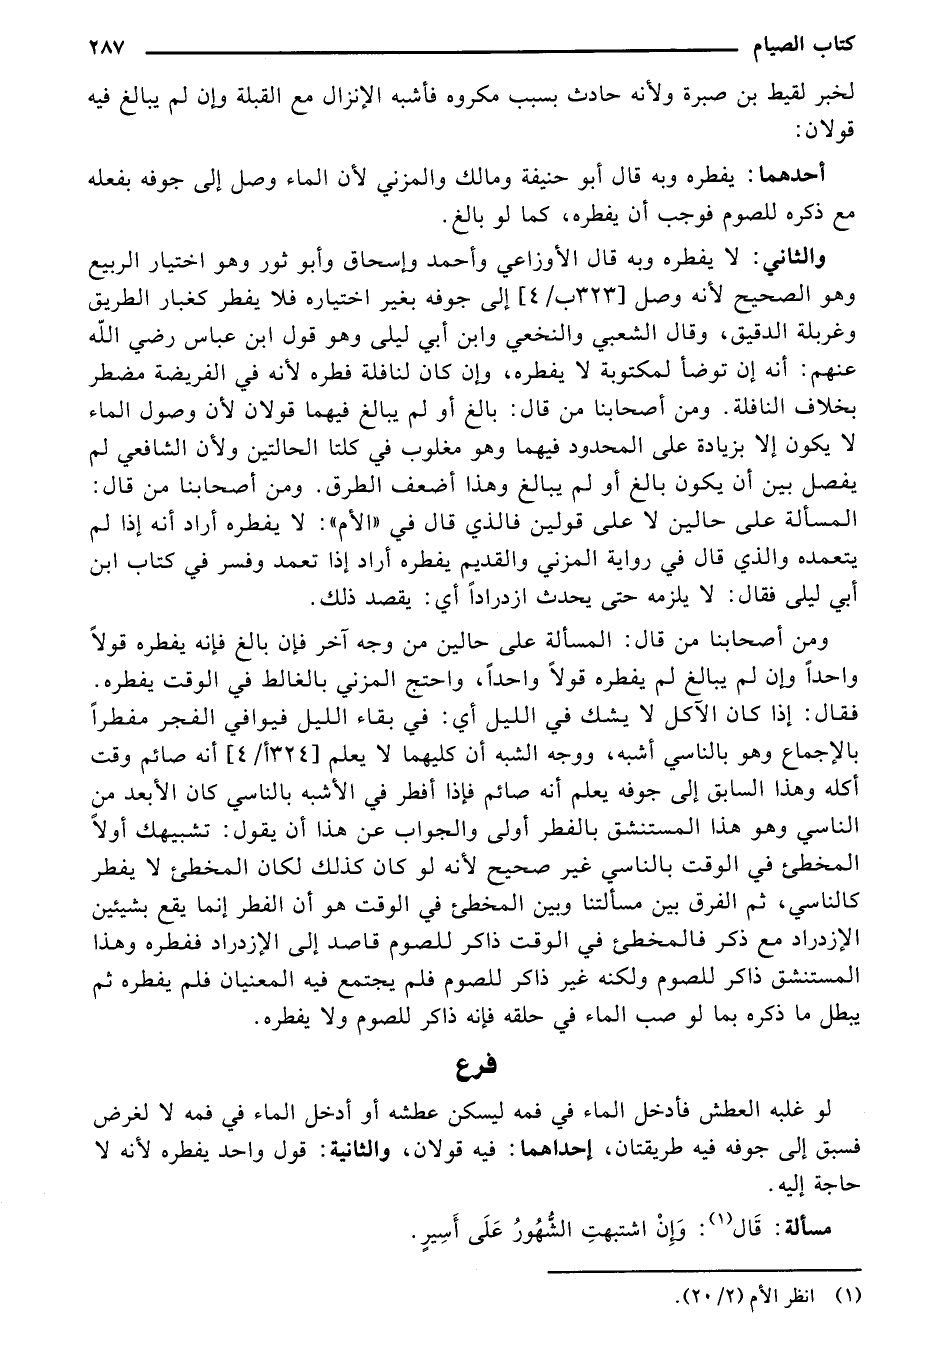 كتاب الصيام ٢٨٧
لخبر لقيط بن صبرة ولأنه حادث بسبب مكروه فأشبه الإنزال مع القبلة وإن لم يبالغ فيه
قولان:
أحدهما: يفطره وبه قال أبو حنيفة ومالك والمزني لأن الماء وصل إلى جوفه بفعله
مع ذكره للصوم فوجب أن يفطره، كما لو بالغ.
والثاني: لا يفطره وبه قال الأوزاعي وأحمد وإسحاق وأبو ثور وهو اختيار الربيع
وهو الصحيح لأنه وصل [٣٢٣ب/ ٤] إلى جوفه بغير اختياره فلا يفطر كغبار الطريق
وغربلة الدقيق، وقال الشعبي والنخعي وابن أبي ليلى وهو قول ابن عباس رضي الله
عنهم: أنه إن توضأ لمكتوبة لا يفطره، وإن كان لنافلة فطره لأنه في الفريضة مضطر
بخلاف النافلة. ومن أصحابنا من قال: بالغ أو لم يبالغ فيهما قولان لأن وصول الماء
لا يكون إلا بزيادة على المحدود فيهما وهو مغلوب في كلتا الحالتين ولأن الشافعي لم
يفصل بين أن يكون بالغ أو لم يبالغ وهذا أضعف الطرق. ومن أصحابنا من قال:
المسألة على حالين لا على قولين فالذي قال في «الأم»: لا يفطره أراد أنه إذا لم
يتعمده والذي قال في رواية المزني والقديم يفطره أراد إذا تعمد وفسر في كتاب ابن
أبي ليلى فقال: لا يلزمه حتى يحدث ازدراداً أي: يقصد ذلك.
ومن أصحابنا من قال: المسألة على حالين من وجه آخر فإن بالغ فإنه يفطره قولاً
واحداً وإن لم يبالغ لم يفطره قولاً واحداً، واحتج المزني بالغالط في الوقت يفطره.
فقال: إذا كان الآكل لا يشك في الليل أي: في بقاء الليل فيوافي الفجر مفطراً
بالإجماع وهو بالناسي أشبه، ووجه الشبه أن كليهما لا يعلم [٣٢٤أ/ ٤] أنه صائم وقت
أكله وهذا السابق إلى جوفه يعلم أنه صائم فإذا أفطر في الأشبه بالناسي كان الأبعد من
الناسي وهو هذا المستنشق بالفطر أولى والجواب عن هذا أن يقول: تشبيهك أولاً
المخطئ في الوقت بالناسي غير صحيح لأنه لو كان كذلك لكان المخطئ لا يفطر
كالناسي، ثم الفرق بين مسألتنا وبين المخطئ في الوقت هو أن الفطر إنما يقع بشيئين
الإزدراد مع ذكر فالمخطئ في الوقت ذاكر للصوم قاصد إلى الإزدراد ففطره وهذا
المستنشق ذاكر للصوم ولكنه غير ذاكر للصوم فلم يجتمع فيه المعنيان فلم يفطره ثم
يبطل ما ذكره بما لو صب الماء في حلقه فإنه ذاكر للصوم ولا يفطره.
فرع
لو غلبه العطش فأدخل الماء في فمه ليسكن عطشه أو أدخل الماء في فمه لا لغرض
فسبق إلى جوفه فيه طريقتان، إحداهما: فيه قولان، والثانية: قول واحد يفطره لأنه لا
حاجة إليه.
مسألة: قَال(١): وَإِنْ اشتبهتِ الشُّهُورُ عَلَى أَسِيرٍ.
(١) انظر الأم (٢/ ٢٠).